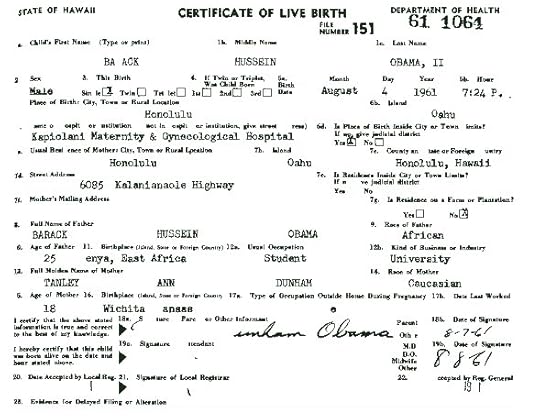 STATE OF HAWAII CERTIFICATE OF LIVE BIRTH DEPARTMENT OF HEALTH
FILE NUMBER 151 61 1064
a. Child's First Name (Type or print) 1b. Middle Name 1c. Last Name
BA ACK HUSSEIN OBAMA, II
2 Sex 3. This Birth 4. If Twin or Triplet, Was Child Born 5a. Birth Date Month Day Year 5b. Hour
Male Sin le Twin Tri let 1st 2nd 3rd August 4 1961 7:24 P.
Place of Birth: City, Town or Rural Location 6b. Island
Honolulu Oahu
6d. Is Place of Birth Inside City or Town imits?
Kapiolani Maternity & Gynecological Hospital Yes No
Usual Resi ence of Mother: City, Town or Rural Location 7b. Island 7c. County an tate or Foreign untry
Honolulu Oahu Honolulu, Hawaii
7d. Street Address 7e. Is Residence Inside City or Town Limits?
6085 Kalanianaole Highway Yes No
7f. Mother's Mailing Address 7g. Is Residence on a Farm or Plantation?
Yes No X
8. Full Name of Father 9. Race of Father
BARACK HUSSEIN OBAMA African
Age of Father 11. Birthplace (Island, State or Foreign Country) 12a. Usual Occupation 12b. Kind of Business or Industry
25 enya, East Africa Student University
13. Full Maiden Name of Mother 14. Race of Mother
TANLEY ANN DUNHAM Caucasian
5. Age of Mother 16. Birthplace (Island, State or Foreign Country) 17a. Type of Occupation Outside Home During Pregnancy 17b. Date Last Worked
18 Wichita ansas e
I certify that the above stated information is true and correct to the best of my knowledge.
18a. S ture Pare or Other Informant unham Obama Parent Othe 18b. Date of Signature
8-7-61
I hereby certify that this child was born alive on the date and hour stated above.
19a. Signature ttendant M.D D.O. Midwife Other 19b. Date of Signature
8 8 61
20. Date Accepted by Local Reg. 21. Signature of Local Registrar 22. ccepted by Reg. General
1 19 1
23. Evidence for Delayed Filing or Alteration